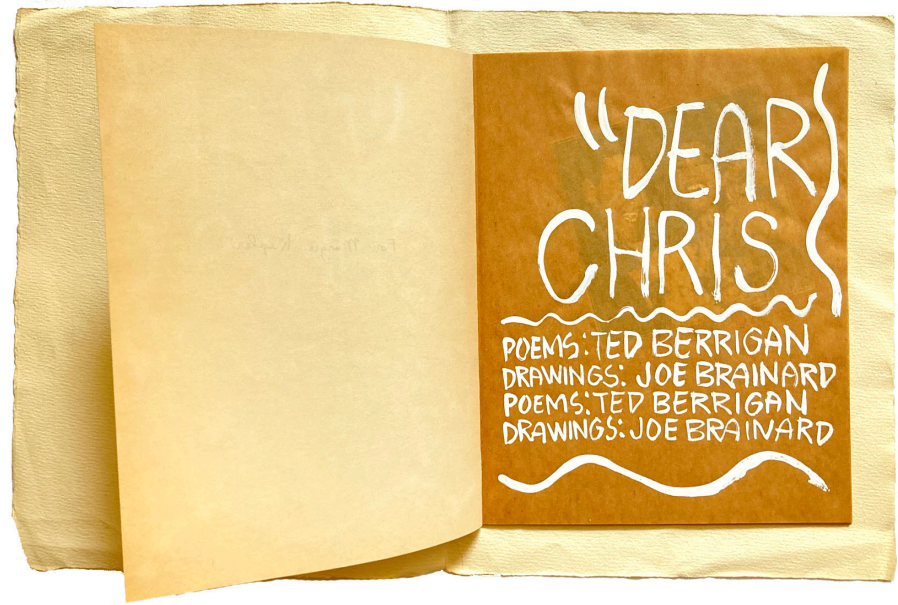 "DEAR
CHRIS
POEMS: TED BERRIGAN
DRAWINGS: JOE BRAINARD
POEMS: TED BERRIGAN
DRAWINGS: JOE BRAINARD